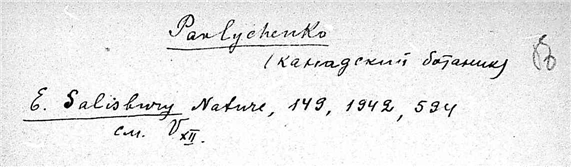 Pavlychenko
(канадский ботаник)
E. Salisbury Nature, 149, 1942, 594
см. V XII.